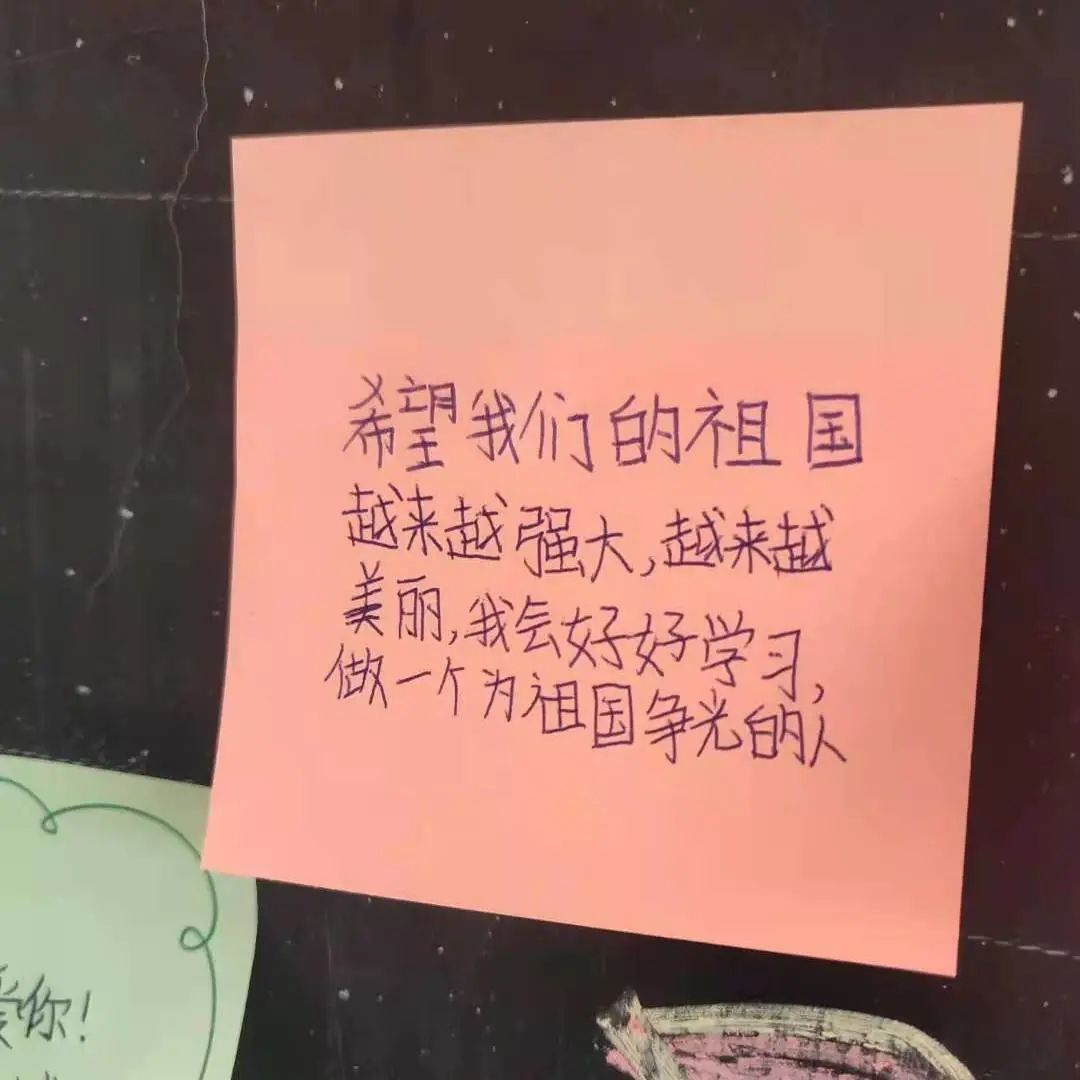 希望我们的祖国
越来越强大,越来越
美丽,我会好好学习,
做一个为祖国争光的人
爱你!